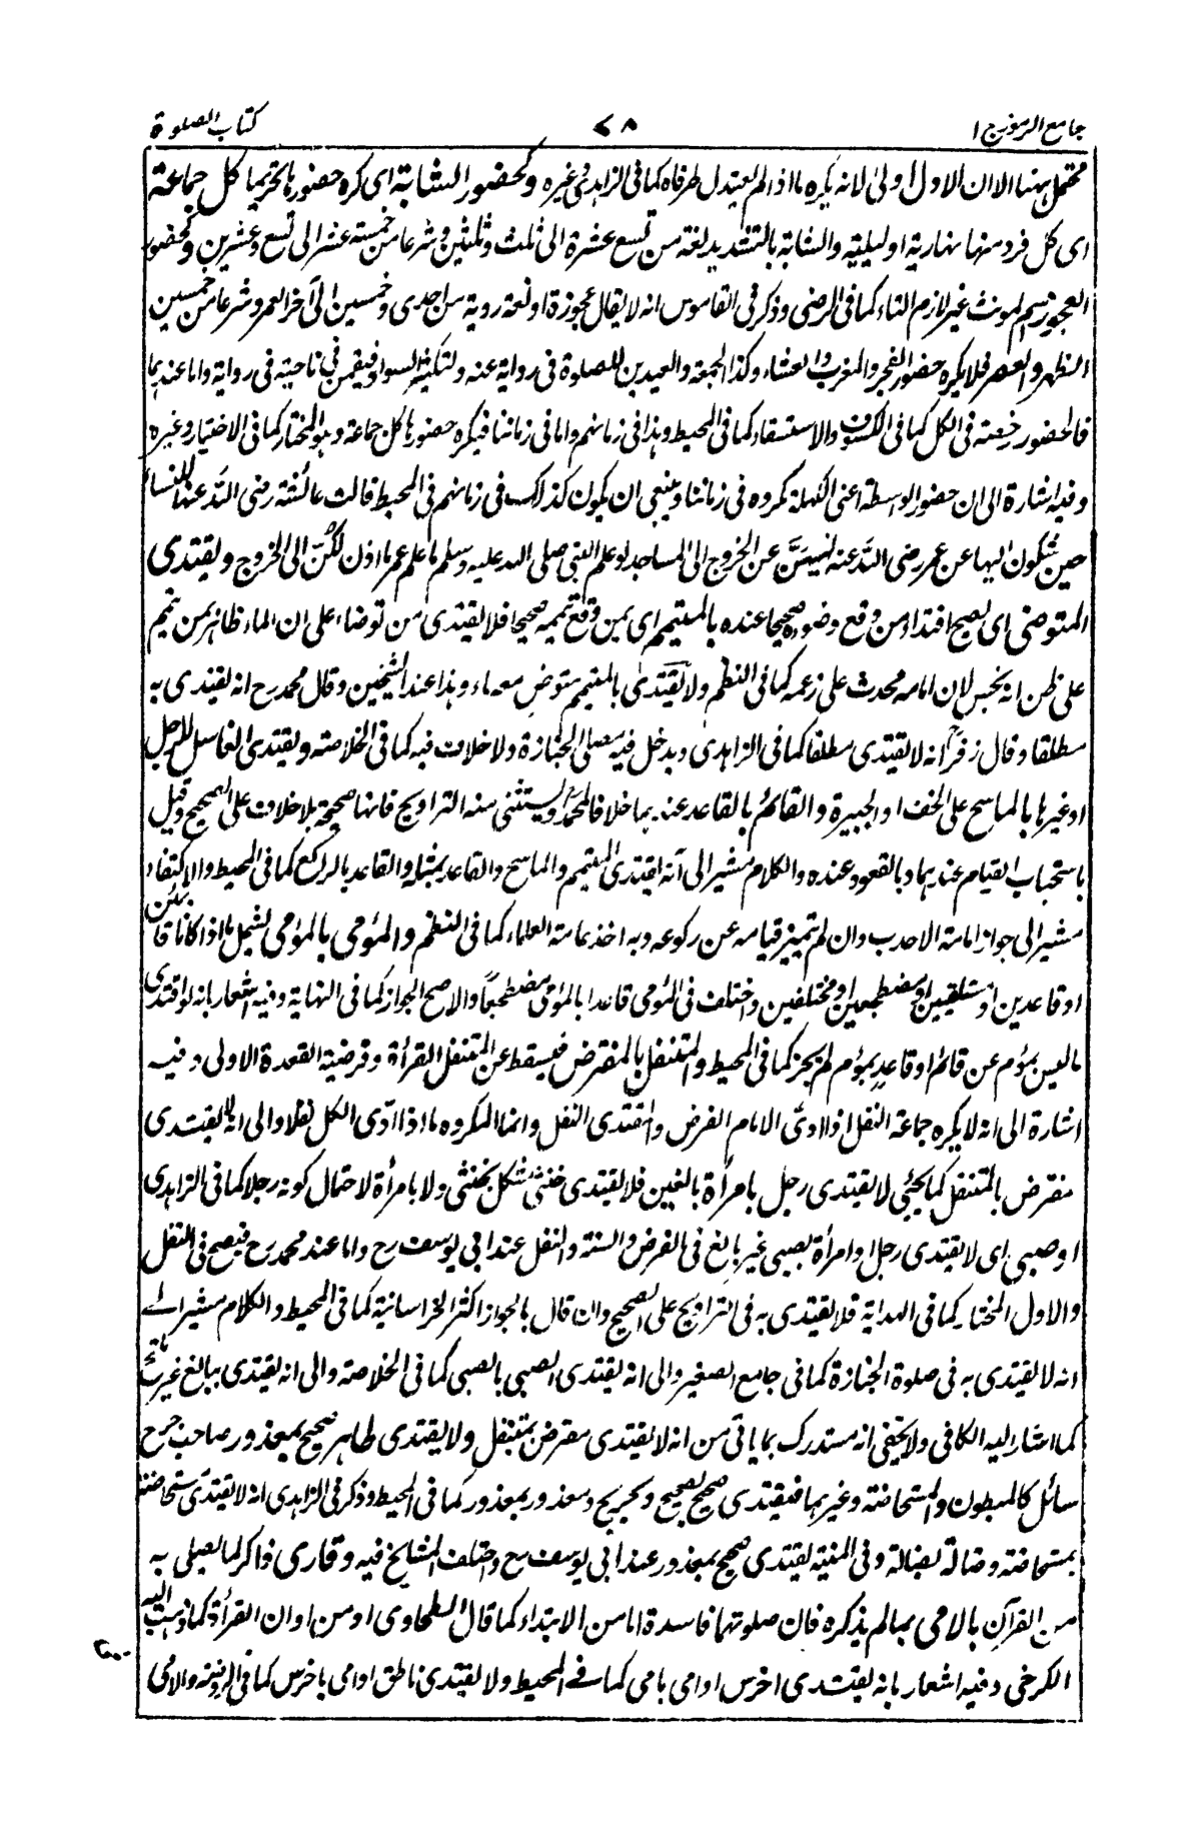 جامع الرموز ج ١ ٧٨ كتاب الصلوة
محتمل ههنا الا ان الاول اولى لانه يكره ما اذا لم يعتدل طرفاه كما فى الزاهدى وغيره وكحضور الشابة اى كره حضورها تحريما كل جماعة
اى كل فرد منها نهارية او ليلية والشابة بالتشديد لغة من تسع عشرة الى ثلث وثلثين وشرعا من خمسة عشر الى تسع وعشرين وكحضور
العجوز اسم لمونث غير لازم التاء كما فى الرضى وذكر فى القاموس انه لا يقال عجوزة او لغة روية من احدى وخمسين الى آخر العمر وشرعا من خمسين
الظهر والعصر فلا يكره حضور الفجر والمغرب والعشاء وكذا الجمعة والعيدين للصلوة فى رواية عنه ولتكثير السواد فيقمن فى ناحية فى رواية واما عندهما
فالحضور رخصة فى الكل كما فى الكسوف والاستسقاء كما فى المحيط وهذا فى زمانهم واما فى زماننا فيكره حضورها كل جماعة وهو المختار كما فى الاختيار وغيره
وفيه اشارة الى ان حضور الوسطة اعنى الكهلة مكروه فى زماننا وينبغى ان يكون كذلك فى زمانهم فى المحيط قالت عائشة رضى الله عنها للنساء
حين شكون اليها عن عمر رضى الله عنه لنهيهن عن الخروج الى المساجد لو علم النبى صلى الله عليه وسلم ما علم عمر ما اذن لكنّ الى الخروج ويقتدى
المتوضى اى يصح اقتداء من وقع وضوءه صحيحا عنده بالمتيمم اى بمن وقع تيممه صحيحا فلا يقتدى من توضاء على ان الماء طاهر بمن تيمم
على ظن انه نجس لان امامه محدث على زعمه كما فى النظم ولا يقتدى بالمتيمم متوض معه ماء وهذا عند الشيخين وقال محمد رح انه يقتدى به
مطلقا وقال زفر رح انه لا يقتدى مطلقا كما فى الزاهدى ويدخل فيه مصلى الجنازة ولا خلاف فيه كما فى الخلاصة ويقتدى الغاسل للرجل
او غيرها بالماسح على الخف او الجبيرة والقائم بالقاعد عندهما خلافا لمحمد رح ويستثنى منه التراويح فانها صحيحة بلا خلاف على الصحيح وقيل
باستحباب القيام عندهما وبالقعود عنده والكلام مشير الى انه يقتدى المتيمم والماسح والقاعد بمثله والقاعد بالراكع كما فى المحيط والاكتفاء
مشير الى جواز امامة الاحدب وان لم يتميز قيامه عن ركوعه وبه اخذ عامة العلماء كما فى النظم والمؤمى بالمؤمى ليشمل ما اذا كانا قائمين
او قاعدين او مستلقيين او مضطجعين او مختلفين واختلف فى المؤمى قاعدا بالمؤمى مضطجعا والاصح الجواز كما فى النهاية وفيه اشعار بانه لو اقتدى
ما ليس بمؤم عن قائم او قاعد بمؤم لم يجز كما فى المحيط والمتنفل بالمفترض فيسقط عن المتنفل القرأة وفرضية القعدة الاولى وفيه
اشارة الى انه لا يكره جماعة النفل اذا ادى الامام الفرض والمقتدى النفل وانما المكروه ما اذا ادّى الكل نفلا والى انه لا يقتدى
مفترض بالمتنفل كما يجئ لا يقتدى رجل بامرأة بالغين فلا يقتدى خنثى مشكل بخنثى ولا بامرأة لاحتمال كونه رجلا كما فى الزاهدى
او صبى اى لا يقتدى رجل او امرأة بصبى غير بالغ فى الفرض والسنة والنفل عند ابى يوسف رح واما عند محمد رح فيصح فى النفل
والاول المختار كما فى الهداية فلا يقتدى به فى التراويح على الصحيح وان قال بالجواز اكثر الخراسانية كما فى المحيط والكلام مشير الى
انه لا يقتدى به فى صلوة الجنازة كما فى جامع الصغير والى انه يقتدى الصبى بالصبى كما فى الخلاصة والى انه يقتدى ببالغ غير ملتح
كما اشار اليه الكافى ولا يخفى انه مستدرك بما ياتى من انه لا يقتدى مفترض بمتنفل ولا يقتدى طاهر صحيح بمعذور صاحب جرح
سائل كالمبطون والمستحاضة وغيرهما فيقتدى صحيح بصحيح وجريح ومعذور بمعذور كما فى المحيط وذكر فى الزاهدى انه لا يقتدى مستحاضة
بمستحاضة وضالة بضالة وفى المنية يقتدى صحيح بمعذور عند ابى يوسف رح واختلف المشايخ فيه وقارى ذاكر لما يصلى به
من القرآن بالامى بما لم يذكره فان صلوتهما فاسدة اما من الابتداء كما قال الطحاوى او من اوان القرأة كما ذهب اليه
الكرخى وفيه اشعار بانه يقتدى اخرس او امى بامى كما فى المحيط ولا يقتدى ناطق او امى باخرس كما فى والامى